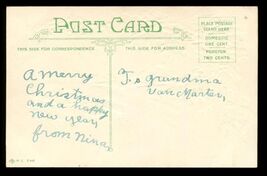 POST CARD
THIS SIDE FOR CORRESPONDENCE
THIS SIDE FOR ADDRESS
PLACE POSTAGE
STAMP HERE
DOMESTIC
ONE CENT
FOREIGN
TWO CENTS
A merry
Christmas
and a happy
new year,
from Nina.
To Grandma
Van Marter,